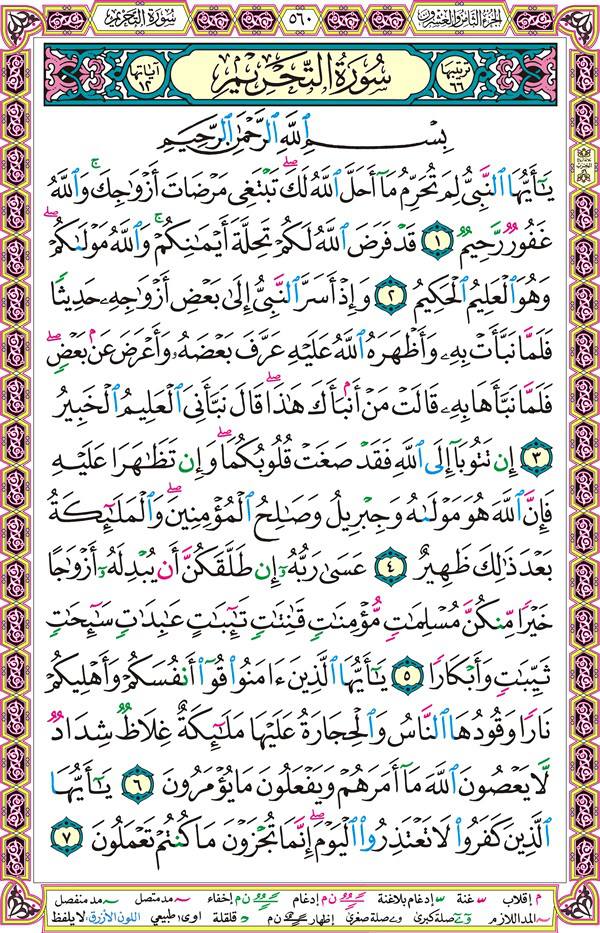 سُورَةُ التَّحْرِيمِ
٥٦٠
الجُزءُ الثَّامِنُ وَالْعِشْرُونَ
ترتيبها ٦٦
سُورَةُ التَّحْرِيمِ
آياتها ١٢
بِسْمِ ٱللَّهِ ٱلرَّحْمَٰنِ ٱلرَّحِيمِ
يَٰٓأَيُّهَا ٱلنَّبِىُّ لِمَ تُحَرِّمُ مَآ أَحَلَّ ٱللَّهُ لَكَ ۖ تَبْتَغِى مَرْضَاتَ أَزْوَٰجِكَ ۚ وَٱللَّهُ
غَفُورٌ رَّحِيمٌ ١ قَدْ فَرَضَ ٱللَّهُ لَكُمْ تَحِلَّةَ أَيْمَٰنِكُمْ ۚ وَٱللَّهُ مَوْلَىٰكُمْ ۖ
وَهُوَ ٱلْعَلِيمُ ٱلْحَكِيمُ ٢ وَإِذْ أَسَرَّ ٱلنَّبِىُّ إِلَىٰ بَعْضِ أَزْوَٰجِهِۦ حَدِيثًا
فَلَمَّا نَبَّأَتْ بِهِۦ وَأَظْهَرَهُ ٱللَّهُ عَلَيْهِ عَرَّفَ بَعْضَهُۥ وَأَعْرَضَ عَنۢ بَعْضٍ ۖ
فَلَمَّا نَبَّأَهَا بِهِۦ قَالَتْ مَنْ أَنۢبَأَكَ هَٰذَا ۖ قَالَ نَبَّأَنِىَ ٱلْعَلِيمُ ٱلْخَبِيرُ
٣ إِن تَتُوبَآ إِلَى ٱللَّهِ فَقَدْ صَغَتْ قُلُوبُكُمَا ۖ وَإِن تَظَٰهَرَا عَلَيْهِ
فَإِنَّ ٱللَّهَ هُوَ مَوْلَىٰهُ وَجِبْرِيلُ وَصَٰلِحُ ٱلْمُؤْمِنِينَ ۖ وَٱلْمَلَٰٓئِكَةُ
بَعْدَ ذَٰلِكَ ظَهِيرٌ ٤ عَسَىٰ رَبُّهُۥٓ إِن طَلَّقَكُنَّ أَن يُبْدِلَهُۥٓ أَزْوَٰجًا
خَيْرًا مِّنكُنَّ مُسْلِمَٰتٍ مُّؤْمِنَٰتٍ قَٰنِتَٰتٍ تَٰٓئِبَٰتٍ عَٰبِدَٰتٍ سَٰٓئِحَٰتٍ
ثَيِّبَٰتٍ وَأَبْكَارًا ٥ يَٰٓأَيُّهَا ٱلَّذِينَ ءَامَنُوا۟ قُوٓا۟ أَنفُسَكُمْ وَأَهْلِيكُمْ
نَارًا وَقُودُهَا ٱلنَّاسُ وَٱلْحِجَارَةُ عَلَيْهَا مَلَٰٓئِكَةٌ غِلَاظٌ شِدَادٌ
لَّا يَعْصُونَ ٱللَّهَ مَآ أَمَرَهُمْ وَيَفْعَلُونَ مَا يُؤْمَرُونَ ٦ يَٰٓأَيُّهَا
ٱلَّذِينَ كَفَرُوا۟ لَا تَعْتَذِرُوا۟ ٱلْيَوْمَ ۖ إِنَّمَا تُجْزَوْنَ مَا كُنتُمْ تَعْمَلُونَ ٧
م إقلاب غنة إدغام بلاغنة ن م إدغام ن م إخفاء مد متصل مد منفصل
المد اللازم صلة كبرى صلة صغرى إظهار ن م قلقلة اوى طبيعي اللون الأزرق: لا يلفظ